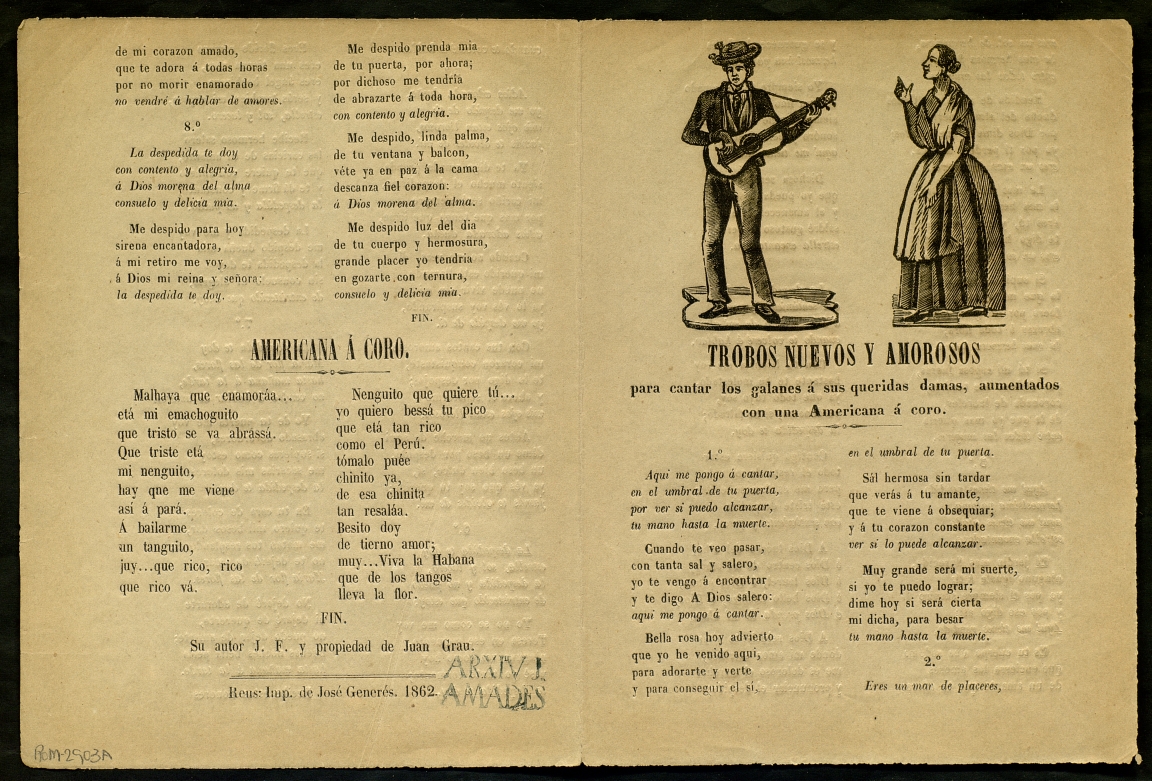 de mi corazon amado,
que te adora á todas horas
por no morir enamorado
no vendré á hablar de amores.
8.º
La despedida te doy
con contento y alegría,
á Dios morena del alma
consuelo y delicia mia.
Me despido para hoy
sirena encantadora,
á mi retiro me voy,
á Dios mi reina y señora:
la despedida te doy.
Me despido prenda mia
de tu puerta, por ahora;
por dichoso me tendría
de abrazarte á toda hora,
con contento y alegría.
Me despido, linda palma,
de tu ventana y balcon,
véte ya en paz á la cama
descanza fiel corazon:
á Dios morena del alma.
Me despido luz del dia
de tu cuerpo y hermosura,
grande placer yo tendria
en gozarte con ternura,
consuelo y delicia mia.
FIN.
AMERICANA Á CORO.
Malhaya que enamoráa...
etá mi emachoguito
que tristo se va abrássá.
Que triste etá
mi nenguito,
hay qne me viene
así á pará.
A bailarme
un tanguito,
juy...que rico, rico
que rico vá.
Nenguito que quiere tú...
yo quiero bessá tu pico
que etá tan rico
como el Perú.
tómalo puée
chinito ya,
de esa chinita
tan resaláa.
Besito doy
de tierno amor;
muy...Viva la Habana
que de los tangos
lleva la flor.
FIN.
Su autor J. F. y propiedad de Juan Grau.
Reus: Imp. de José Generés. 1862.
ARXIU J.
AMADES
ROM-2903A
TROBOS NUEVOS Y AMOROSOS
para cantar los galanes á sus queridas damas, aumentados
con una Americana á coro.
1.º
Aqui me pongo á cantar,
en el umbral de tu puerta,
por ver si puedo alcanzar,
tu mano hasta la muerte.
Cuando te veo pasar,
con tanta sal y salero,
yo te vengo á encontrar
y te digo A Dios salero:
aquí me pongo á cantar.
Bella rosa hoy advierto
que yo he venido aquí,
para adorarte y verte
y para conseguir el sí,
en el umbral de tu puerta.
Sál hermosa sin tardar
que verás á tu amante,
que te viene á obsequiar;
y á tu corazon constante
ver si lo puede alcanzar.
Muy grande será mi suerte,
si yo te puedo lograr;
dime hoy si será cierta
mi dicha, para besar
tu mano hasta la muerte.
2.º
Eres un mar de placeres,